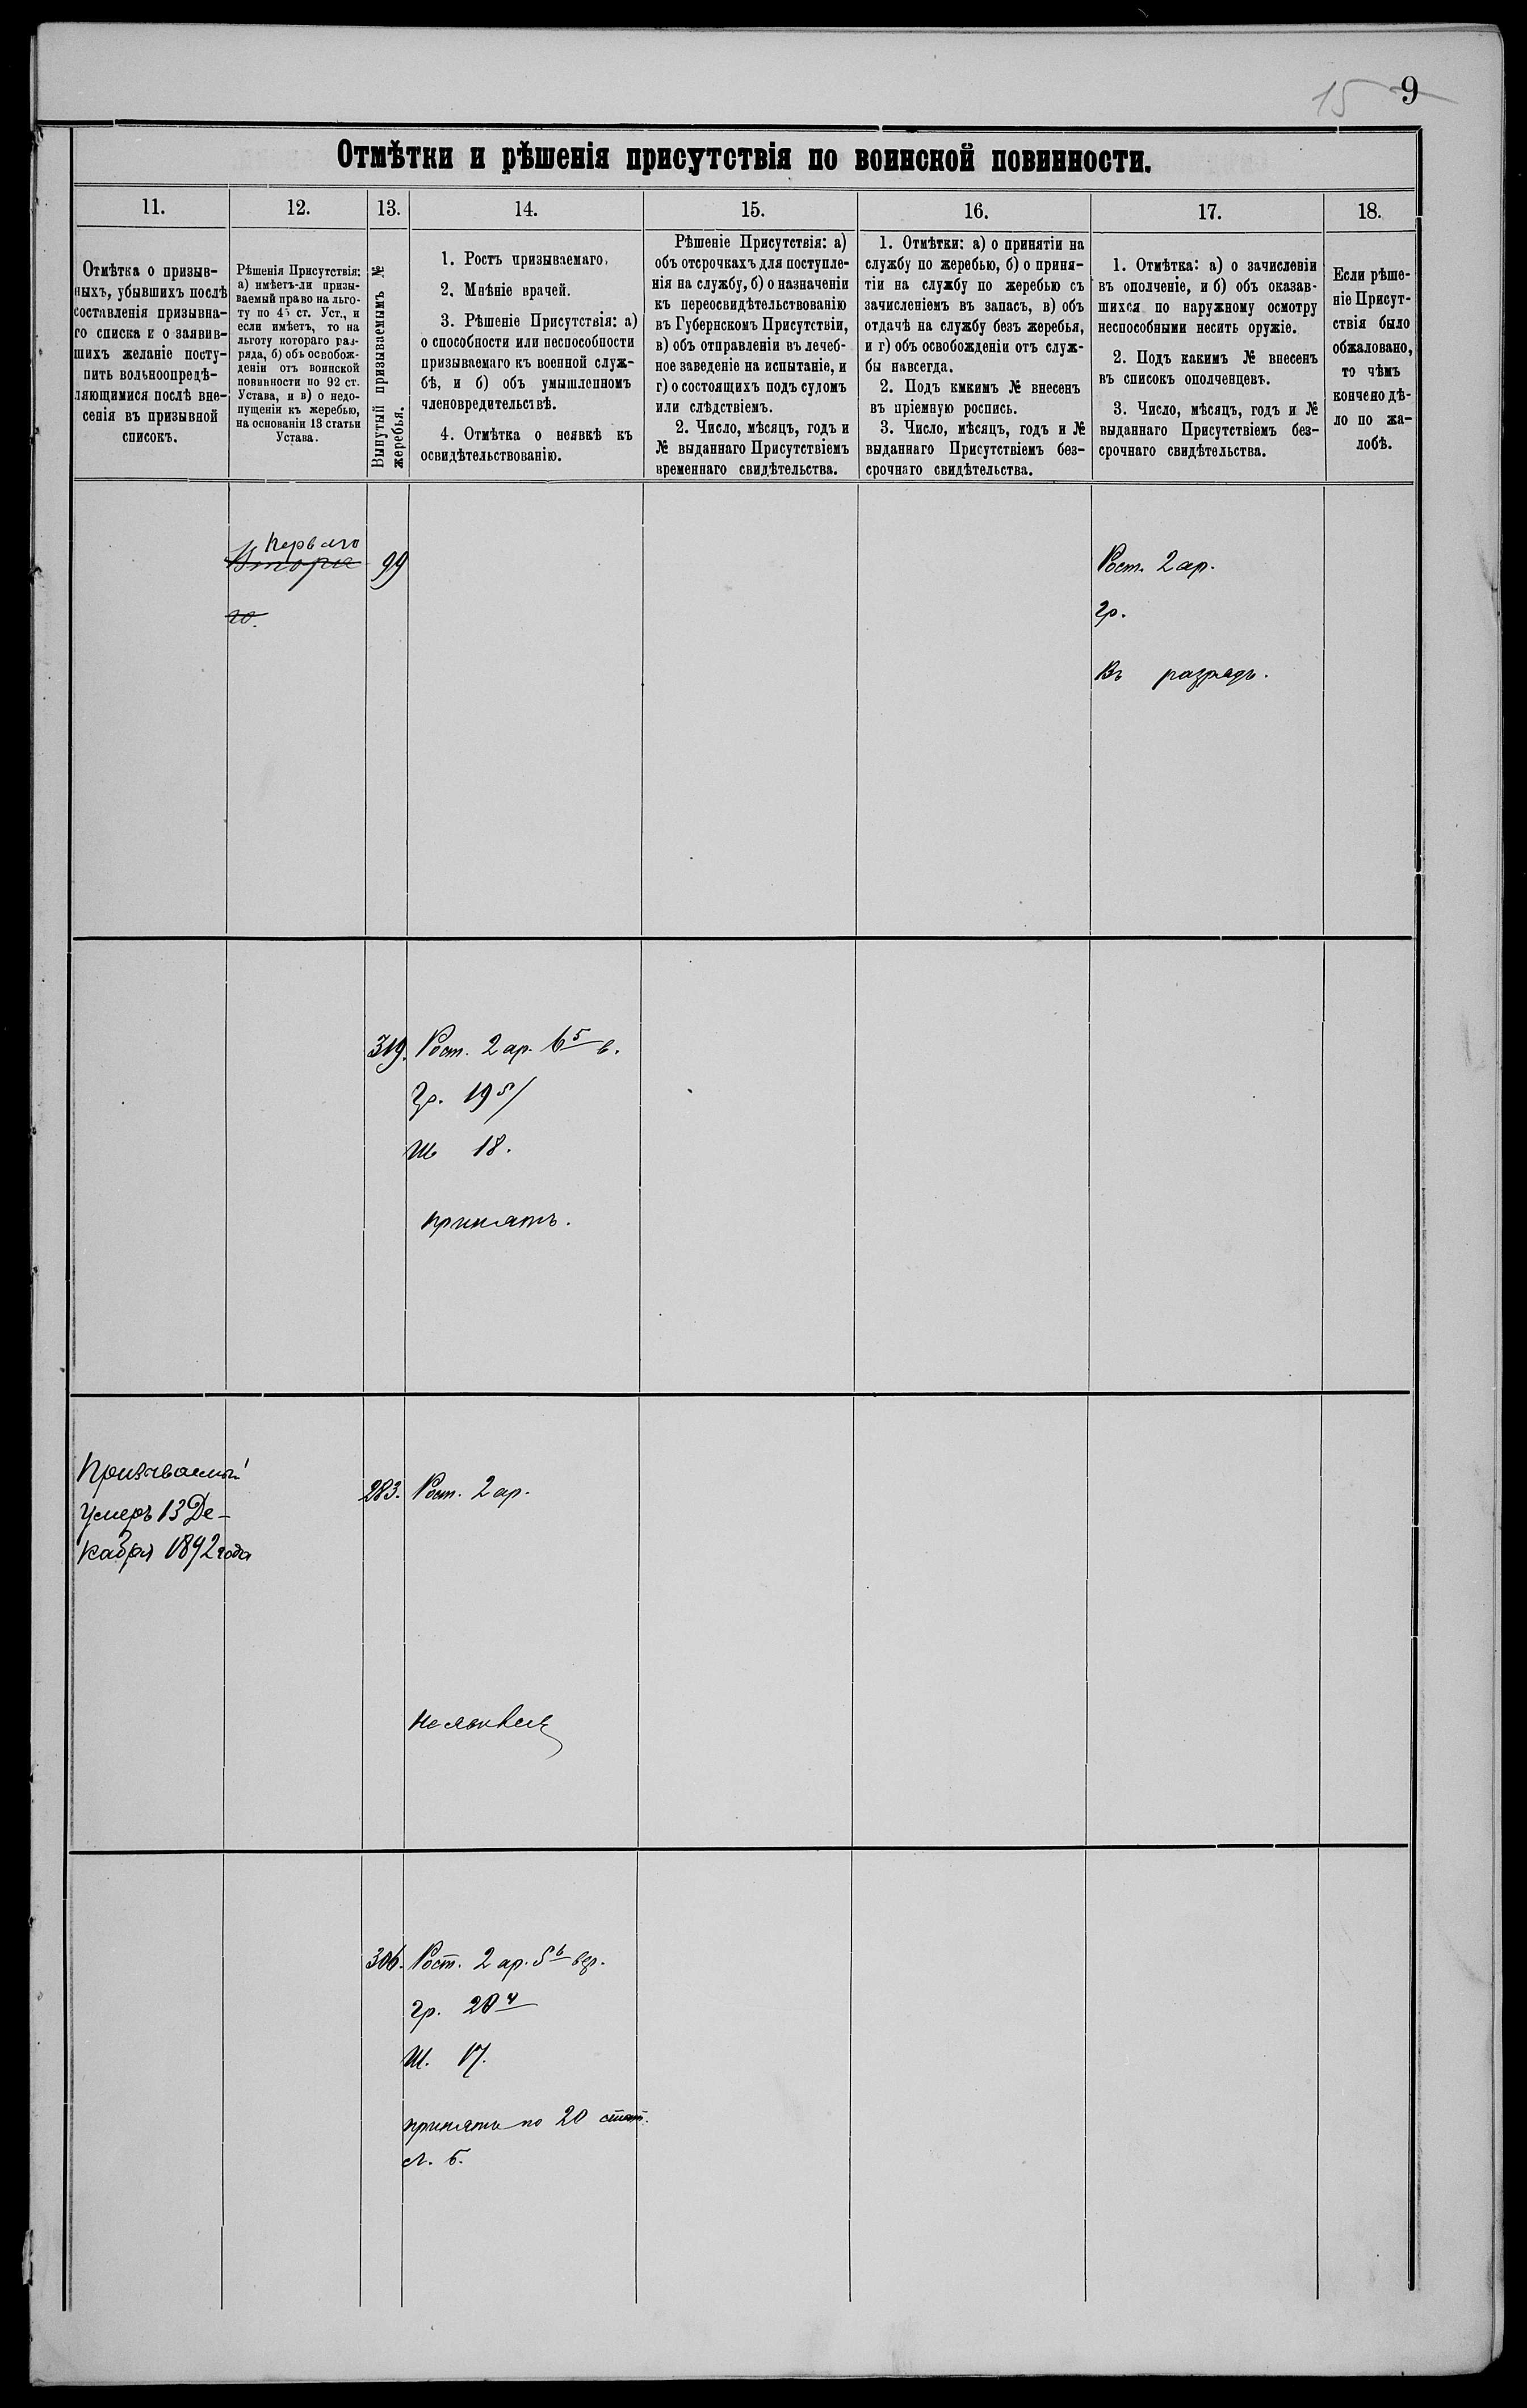 15 9
Отмѣтки и рѣшенія присутствія по воинской повинности.
11.
12.
13.
14.
15.
16.
17.
18.
Отмѣтка о призыв-
ныхъ, убывшихъ послѣ
составленія призывна-
го списка и о заявив-
шихъ желаніе посту-
пить вольноопредѣ-
ляющимися послѣ вне-
сенія въ призывной
списокъ.
Рѣшенія Присутствія:
а) имѣетъ-ли призы-
ваемый право на льго-
ту по 45 ст. Уст., и
если имѣетъ, то на
льготу котораго раз-
ряда, б) объ освобож-
деніи отъ воинской
повинности по 92 ст.
Устава, и в) о недо-
пущеніи къ жеребью,
на основаніи 13 статьи
Устава.
Вынутый призываемымъ №
жеребья.
1. Ростъ призываемаго.
2. Мнѣніе врачей.
3. Рѣшеніе Присутствія: а)
о способности или неспособности
призываемаго къ военной служ-
бѣ, и б) объ умышленномъ
членовредительствѣ.
4. Отмѣтка о неявкѣ къ
освидѣтельствованію.
Рѣшеніе Присутствія: а)
объ отсрочкахъ для поступле-
нія на службу, б) о назначеніи
къ переосвидѣтельствованію
въ Губернскомъ Присутствіи,
в) объ отправленіи въ лечеб-
ное заведеніе на испытаніе, и
г) о состоящихъ подъ судомъ
или слѣдствіемъ.
2. Число, мѣсяцъ, годъ и
№ выданнаго Присутствіемъ
временнаго свидѣтельства.
1. Отмѣтки: а) о принятіи на
службу по жеребью, б) о приня-
тіи на службу по жеребью съ
зачисленіемъ въ запасъ, в) объ
отдачѣ на службу безъ жеребья,
и г) объ освобожденіи отъ служ-
бы навсегда.
2. Подъ кмкимъ № внесенъ
въ пріемную роспись.
3. Число, мѣсяцъ, годъ и №
выданнаго Присутствіемъ без-
срочнаго свидѣтельства.
1. Отмѣтка: а) о зачисленіи
въ ополченіе, и б) объ оказав-
шихся по наружному осмотру
неспособными несить оружіе.
2. Подъ какимъ № внесенъ
въ списокъ ополченцевъ.
3. Число, мѣсяцъ, годъ и №
выданнаго Присутствіемъ без-
срочнаго свидѣтельства.
Если рѣше-
ніе Присут-
ствія было
обжаловано,
то чѣмъ
кончено дѣ-
ло по жа-
лобѣ.
Перваго
Втора
го.
99
Рост. 2 ар.
гр.
Въ разрядъ.
319.
Рост. 2 ар. 6 5 в.
Гр. 19 5/
Ш 18.
принятъ.
Призываемый
умеръ 13 Де-
кабря 1892 года
283.
Рост. 2 ар.
Не явился
306.
Рост. 2 ар. 5 6 вер.
Гр. 20 4
Ш. 17.
принятъ по 20 стат.
л. Б.